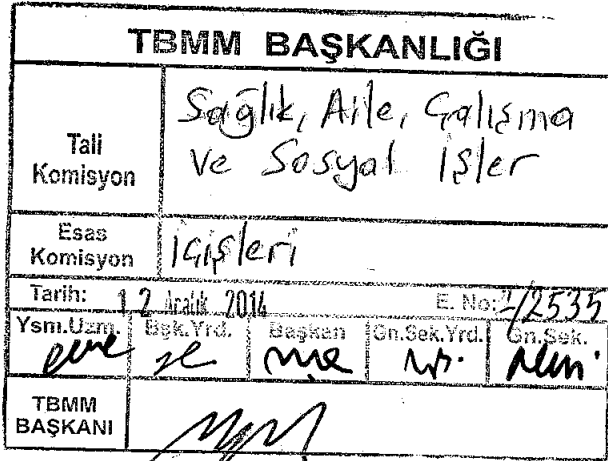 TBMM BAŞKANLIĞI
Tali Komisyon
Sağlık, Aile, Çalışma
ve Sosyal İşler
Esas Komisyon
İçişleri
Tarih: 12 Aralık 2014 E. No: 2/2535
Ysm.Uzm. Bşk.Yrd. Başkan Gn.Sek.Yrd. Gn.Sek.
TBMM
BAŞKANI